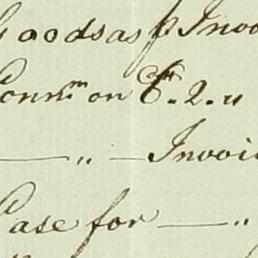 Goods as ⅌ Invo
Comm.n on £. 2. "
— " — Invoi
Case for — "